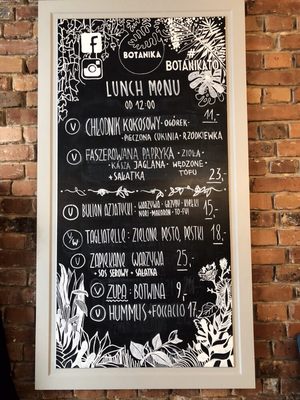 f
BOTANIKA
#BOTANIKATO
LUNCH MENU
OD 12:00
V CHŁODNIK KOKOSOWY • OGÓREK • 11.-
• PIECZONA CUKINIA • RZODKIEWKA
V FASZEROWANA PAPRYKA • ZIOŁA •
• KASZA JAGLANA • WĘDZONE TOFU
+ SAŁATKA 23.-
V BULION AZJATYCKI • WARZYWA • GRZYBY • KIEŁKI 15.-
NORI • MAKARON • TO-FU
V/W TAGLIATELLE: ZIELONE PESTO, PESTKI 18.-
V ZAPIEKANE WARZYWA 25.-
+ SOS SEROWY + SAŁATKA
V ZUPA: BOTWINA 9.-
V HUMMUS + FOCCACIO 17.-